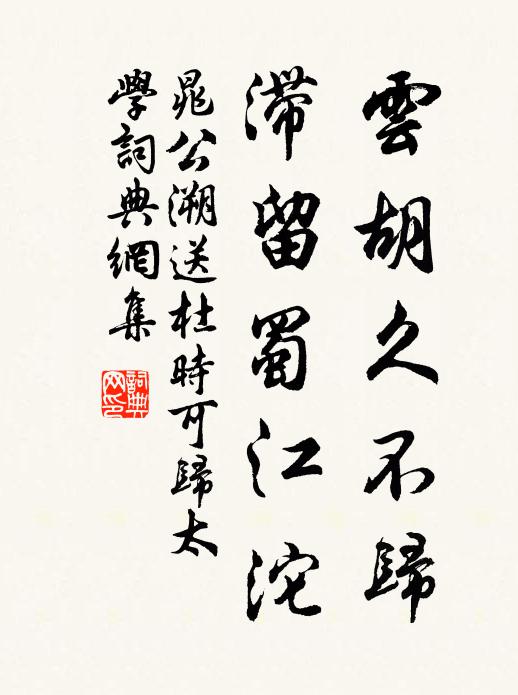 雲胡久不歸
滯留蜀江沱
晁公溯送杜時可歸太
學詞典網集
詞典
网印